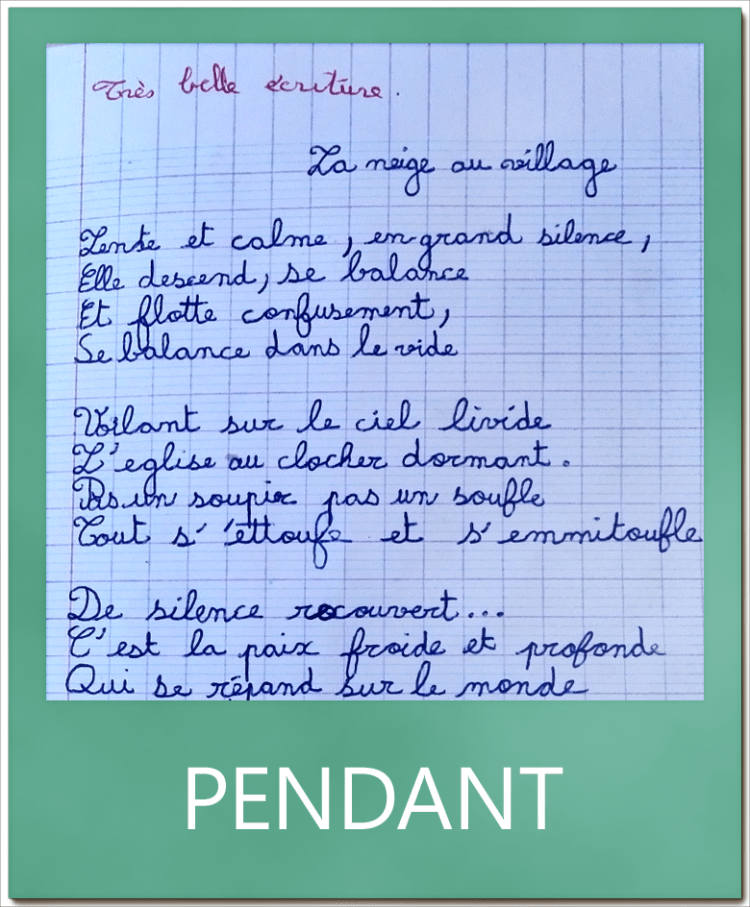 Très belle écriture.
La neige au village
Lente et calme, en grand silence,
Elle descend, se balance
Et flotte confusement,
Se balance dans le vide
Voilant sur le ciel livide
L'eglise au clocher dormant.
Pas un soupir pas un souffle
Tout s' 'ettoufe et s'emmitoufle
De silence recouvert...
C'est la paix froide et profonde
Qui se répand sur le monde
PENDANT